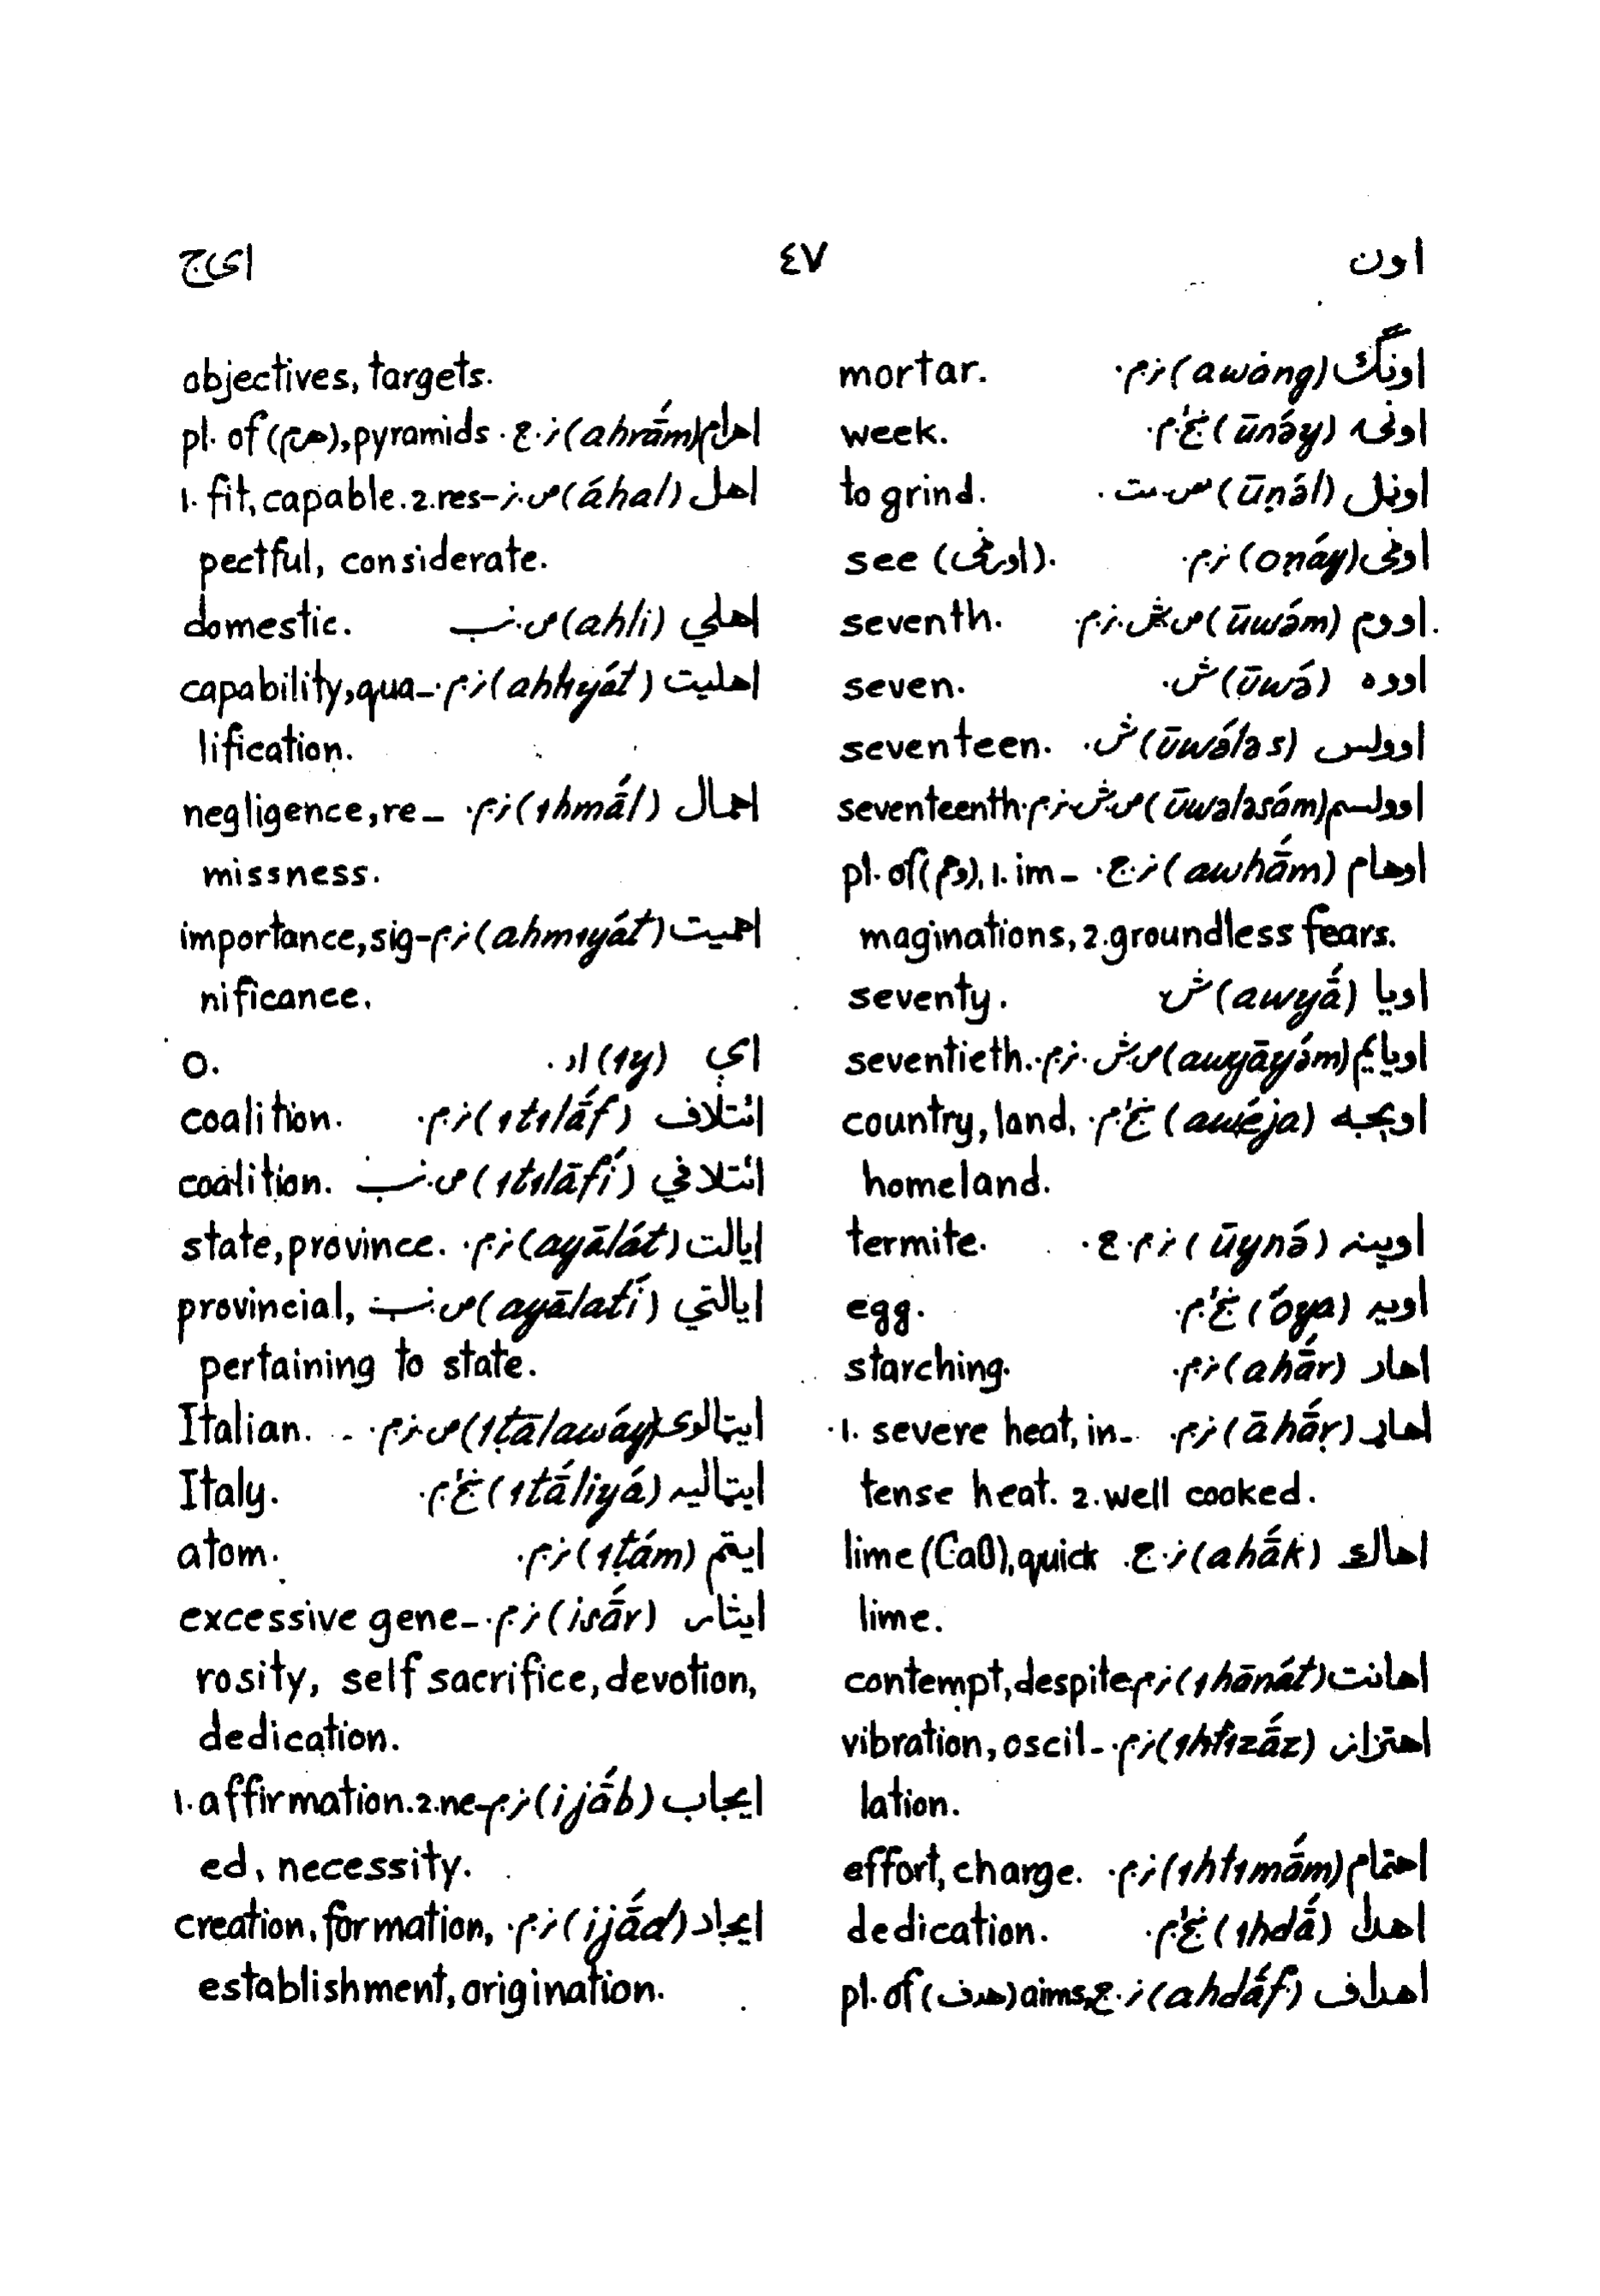 اون ٤٧ ای ج
اونګ (awáng) ن.م. mortar.
اونۍ (ūnə́y) ښځ.م. week.
اوڼل (ūṇə́l) س.مت. to grind.
اوڼی (oṇáy) ن.م. see
اووم (ūwə́m) ص.ش.ن.م. seventh.
اووه (ūwə́) ش. seven.
اوولس (ūwə́ləs) ش. seventeen.
اوولسم (ūwələsə́m) ص.ش.ن.م. seventeenth.
اوهام (awhā́m) ن.ج. pl. of (وهم), 1. im-
maginations, 2. groundless fears.
اويا (awyā́) ش seventy.
اويايم (awyāyə́m) ص.ش.ن.م. seventieth.
اويجه (awéja) ښځ.م. country, land,
homeland.
اوينه (ūynə́) ن.م.ج. termite.
اويه (óya) ښځ.م. egg.
اهار (ahā́r) ن.م. starching.
اهاړ (āhā́ṛ) ن.م. 1. severe heat, in-
tense heat. 2. well cooked.
اهاک (ahā́k) ن.ج. lime (CaO), quick
lime.
اهانت (ıhānát) ن.م. contempt, despite
اهتزاز (ıhtızā́z) ن.م. vibration, oscil-
lation.
اهتمام (ıhtımā́m) ن.م. effort, charge.
اهدا (ıhdā́) ښځ.م. dedication.
اهداف (ahdā́f) ن.ج. pl. of (هدف) aims,
objectives, targets.
اهرام (ahrā́m) ن.ج. pl. of (هرم), pyramids
اهل (áhal) ص.ن. 1. fit, capable. 2. res-
pectful, considerate.
اهلي (ahli) ص.نب domestic.
اهليت (ahlıyát) ن.م. capability, qua-
lification.
اهمال (ıhmā́l) ن.م. negligence, re-
missness.
اهميت (ahmıyát) ن.م. importance, sig-
nificance.
اې (ıy) اد. O.
ائتلاف (ıtılā́f) ن.م. coalition.
ائتلافي (ıtılāfí) ص.نب coalition.
ايالت (ayālát) ن.م. state, province.
ايالتي (ayālatí) ص.نب provincial,
pertaining to state.
ايټالوی (ıṭālawáy) ص.ن.م. Italian.
ايټاليه (ıtāliyá) ښځ.م. Italy.
ايټم (ıṭám) ن.م. atom.
ايثار (isā́r) ن.م. excessive gene-
rosity, self sacrifice, devotion,
dedication.
ايجاب (ijā́b) ن.م. 1. affirmation. 2. ne-
ed, necessity.
ايجاد (ijā́d) ن.م. creation, formation,
establishment, origination.